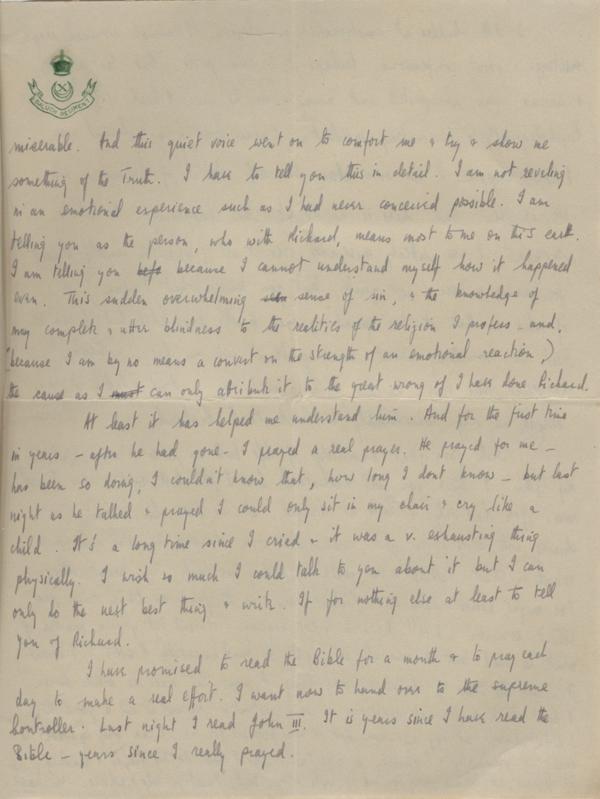 BALUCH REGIMENT
miserable. And this quiet voice went on to comfort me & try & show me
something of the Truth. I have to tell you this in detail. I am not reveling
in an emotional experience such as I had never conceived possible. I am
telling you as the person, who with Richard, means most to me on this earth.
I am telling you befo because I cannot understand myself how it happened
even. This sudden overwhelming sense of sin, & the knowledge of
my complete & utter blindness to the realities of the religion I profess - and,
(because I am by no means a convert on the strength of an emotional reaction,)
the cause as I must can only atribute it to the great wrong of I have done Richard.
At least it has helped me understand him. And for the first time
in years - after he had gone - I prayed a real prayer. He prayed for me -
has been so doing, I couldn't know that, how long I dont know - but last
night as he talked & prayed I could only sit in my chair & cry like a
child. It's a long time since I cried & it was a v. exhausting thing
physically. I wish so much I could talk to you about it but I can
only do the next best thing & write. If for nothing else at least to tell
you of Richard.
I have promised to read the Bible for a month & to pray each
day to make a real effort. I want now to hand over to the supreme
Controller. Last night I read John III. It is years since I have read the
Bible - years since I really prayed.